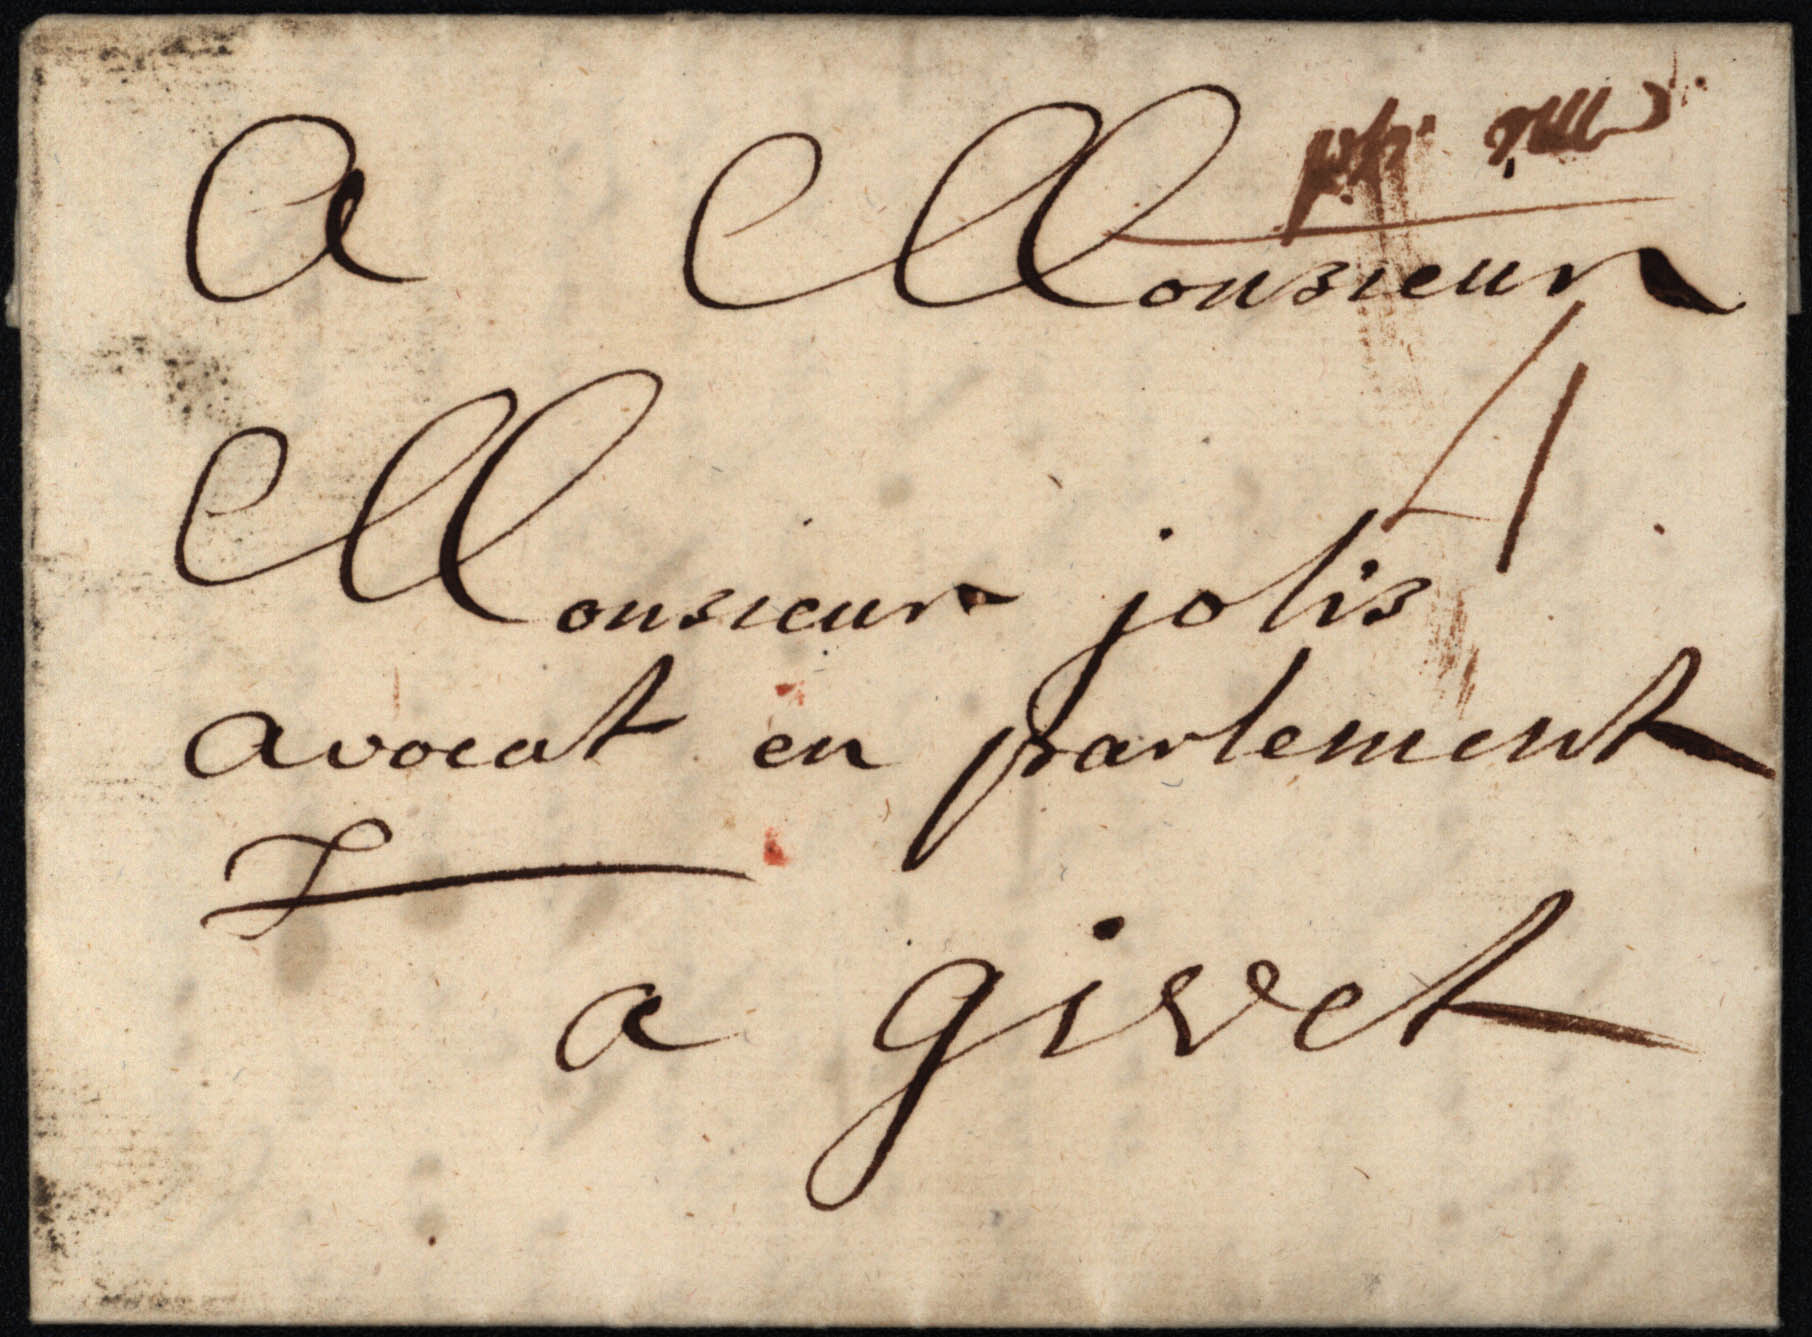 A Monsieur
4
Monsieur jolis
avocat en parlement
a givet